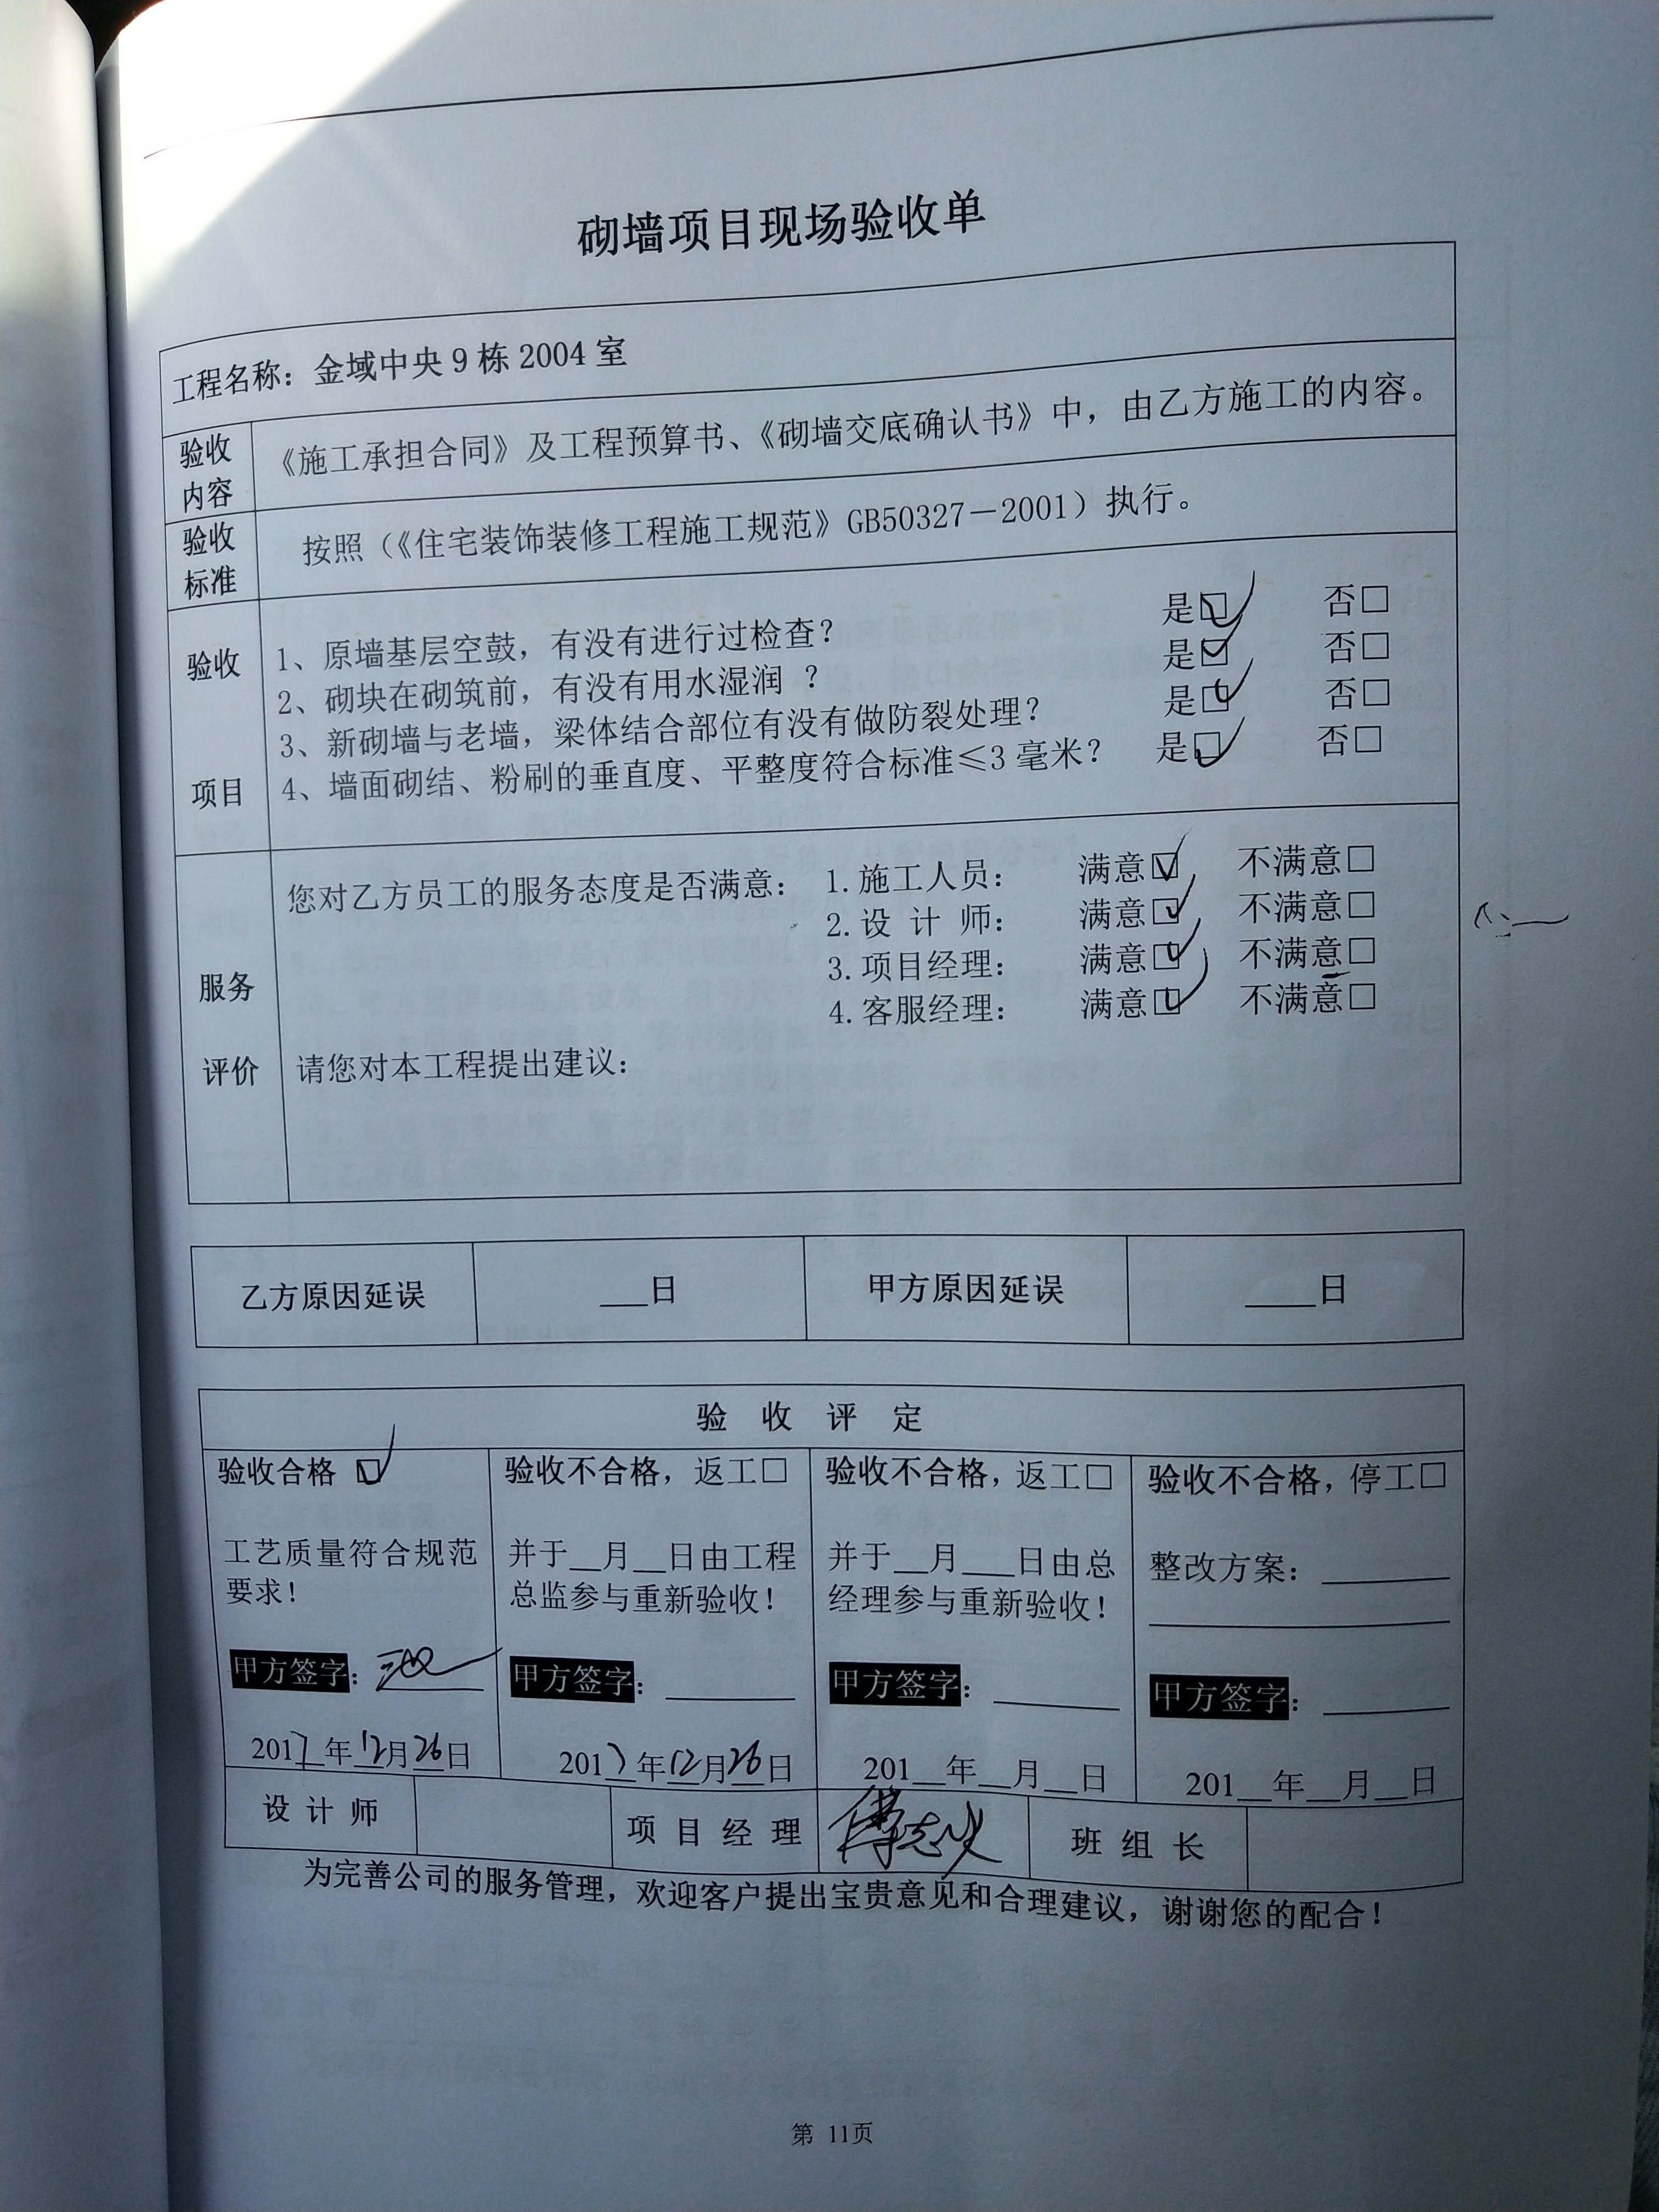 砌墙项目现场验收单
工程名称：金域中央9栋2004室
验收内容
《施工承担合同》及工程预算书、《砌墙交底确认书》中，由乙方施工的内容。
验收标准
按照（《住宅装饰装修工程施工规范》GB50327－2001）执行。
验收项目
1、原墙基层空鼓，有没有进行过检查？ 是☑ 否□
2、砌块在砌筑前，有没有用水湿润 ？ 是☑ 否□
3、新砌墙与老墙，梁体结合部位有没有做防裂处理？ 是☑ 否□
4、墙面砌结、粉刷的垂直度、平整度符合标准≤3毫米？ 是☑ 否□
服务评价
您对乙方员工的服务态度是否满意： 1.施工人员： 满意☑ 不满意□
2.设 计 师： 满意☑ 不满意□
3.项目经理： 满意☑ 不满意□
4.客服经理： 满意☑ 不满意□
请您对本工程提出建议：
乙方原因延误 ___日 甲方原因延误 ____日
验 收 评 定
验收合格 ☑
工艺质量符合规范
要求！
甲方签字：
2017年12月26日
验收不合格，返工□
并于__月__日由工程
总监参与重新验收！
甲方签字：________
2017年12月26日
验收不合格，返工□
并于__月___日由总
经理参与重新验收！
甲方签字：________
201__年__月__日
验收不合格，停工□
整改方案：________
甲方签字：________
201__年__月__日
设 计 师 项 目 经 理 班 组 长
为完善公司的服务管理，欢迎客户提出宝贵意见和合理建议，谢谢您的配合！
第 11页